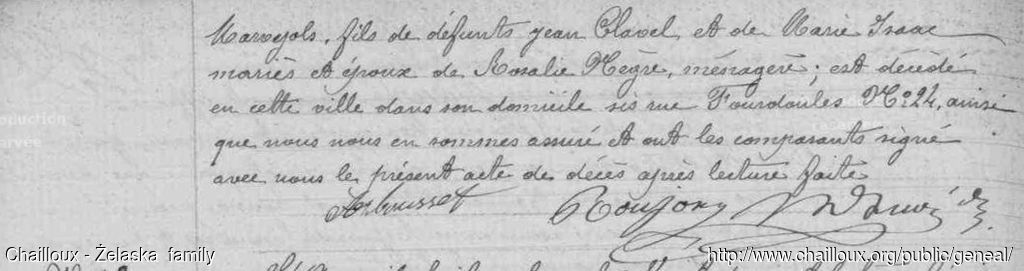 Marvejols, fils de défunts Jean Clavel, et de Marie Isaac
mariés et époux de Rosalie Nègre, ménagère; est décédé
en cette ville dans son domicile sis rue Fourdoules No 24, ainsi
que nous nous en sommes assuré et ont les comparants signé
avec nous le présent acte de décès après lecture faite
Chailloux - Želaska family
http://www.chailloux.org/public/geneal/